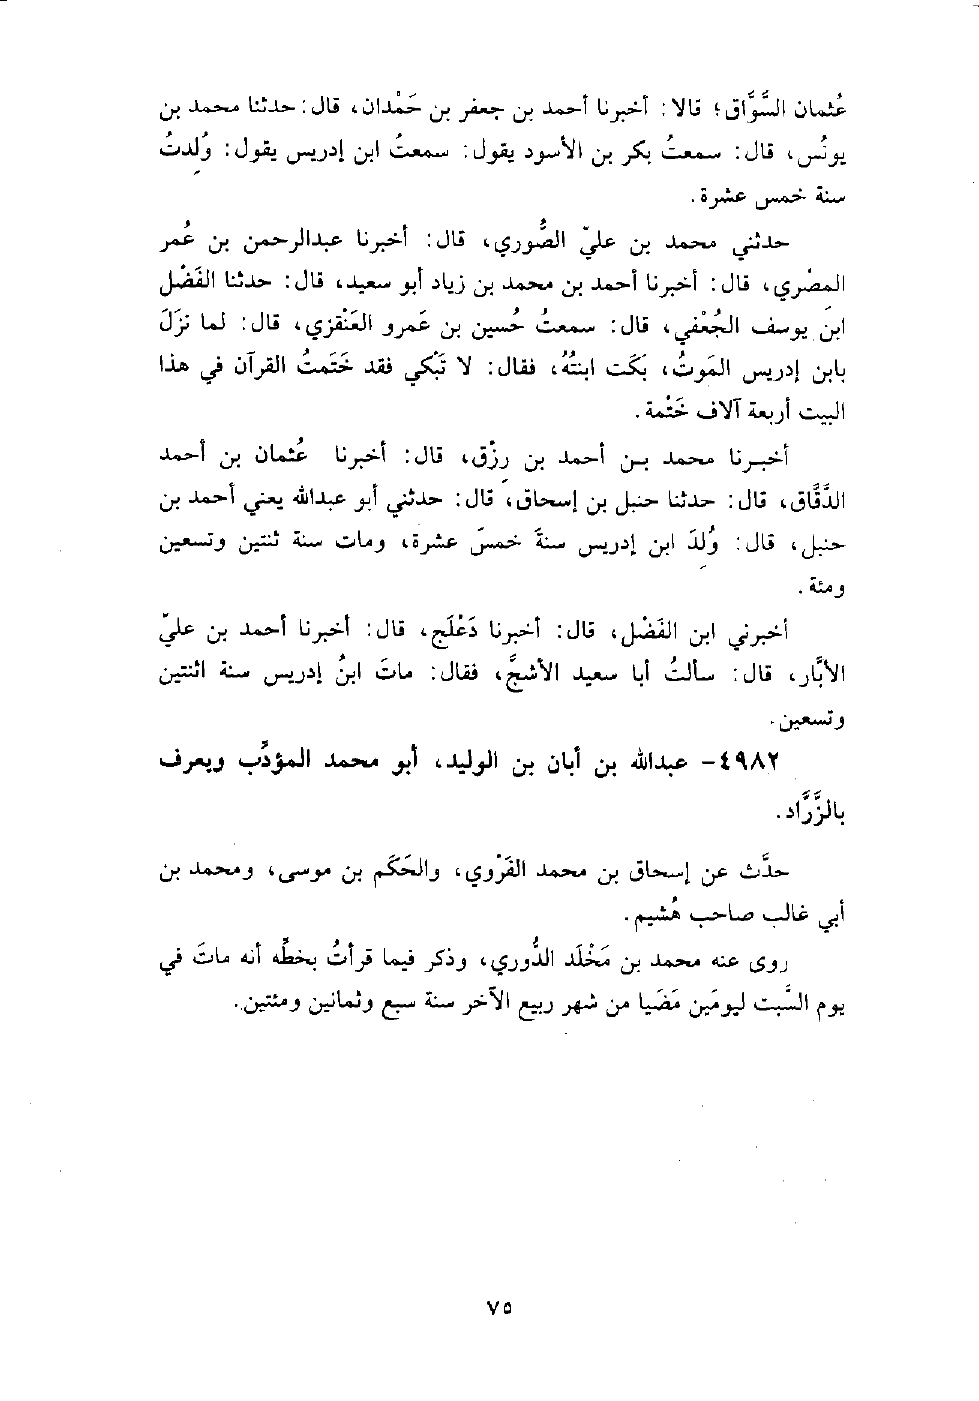 عُثمان السَّوَّاق؛ قالا: أخبرنا أحمد بن جعفر بن حَمْدان، قال: حدثنا محمد بن
يونُس، قال: سمعتُ بكر بن الأسود يقول: سمعتُ ابن إدريس يقول: وُلِدتُ
سنة خمس عشرة.
حدثني محمد بن عليّ الصُّوري، قال: أخبرنا عبدالرحمن بن عُمر
المِصْري، قال: أخبرنا أحمد بن محمد بن زياد أبو سعيد، قال: حدثنا الفَضْل
ابن يوسف الجُعْفي، قال: سمعتُ حُسين بن عَمرو العَنْقزي، قال: لما نزَلَ
بابن إدريس المَوتُ، بَكَت ابنتُهُ، فقال: لا تَبْكي فقد خَتَمتُ القرآن في هذا
البيت أربعة آلاف خَتْمة.
أخبـرنا محمد بـن أحمد بن رِزْق، قال: أخبرنا عُثمان بن أحمد
الدَّقَّاق، قال: حدثنا حنبل بن إسحاق، قال: حدثني أبو عبدالله يعني أحمد بن
حنبل، قال: وُلِدَ ابن إدريس سنةَ خمسَ عشرة، ومات سنة ثنتين وتسعين
ومئة.
أخبرني ابن الفَضْل، قال: أخبرنا دَعْلَج، قال: أخبرنا أحمد بن عليّ
الأبَّار، قال: سألتُ أبا سعيد الأشجَّ، فقال: ماتَ ابنُ إدريس سنة اثنتين
وتسعين.
٤٩٨٢- عبدالله بن أبان بن الوليد، أبو محمد المؤدِّب ويعرف
بالزَّرَّاد.
حدَّث عن إسحاق بن محمد الفَرْوي، والحَكَم بن موسى، ومحمد بن
أبي غالب صاحب هُشيم.
روى عنه محمد بن مَخْلَد الدُّوري، وذكر فيما قرأتُ بخطِّه أنه ماتَ في
يوم السَّبت ليومَين مَضَيا من شهر ربيع الآخر سنة سبع وثمانين ومئتين.
٧٥